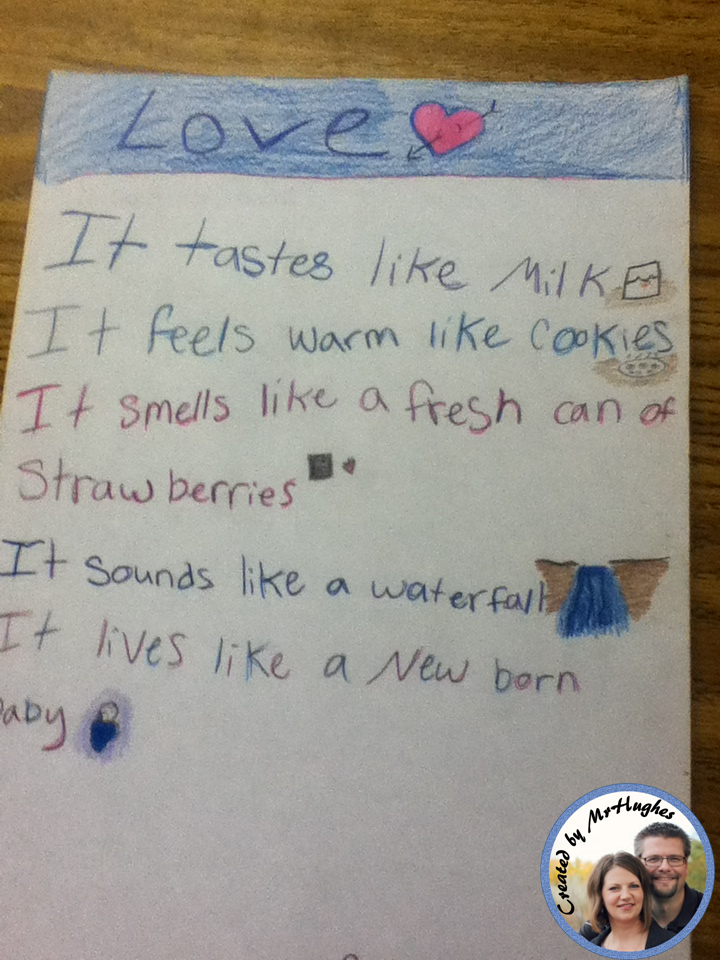 Love
It tastes like Milk
It feels warm like Cookies
It smells like a fresh can of
Strawberries
It sounds like a waterfall
It lives like a New born
baby
Created by MrHughes